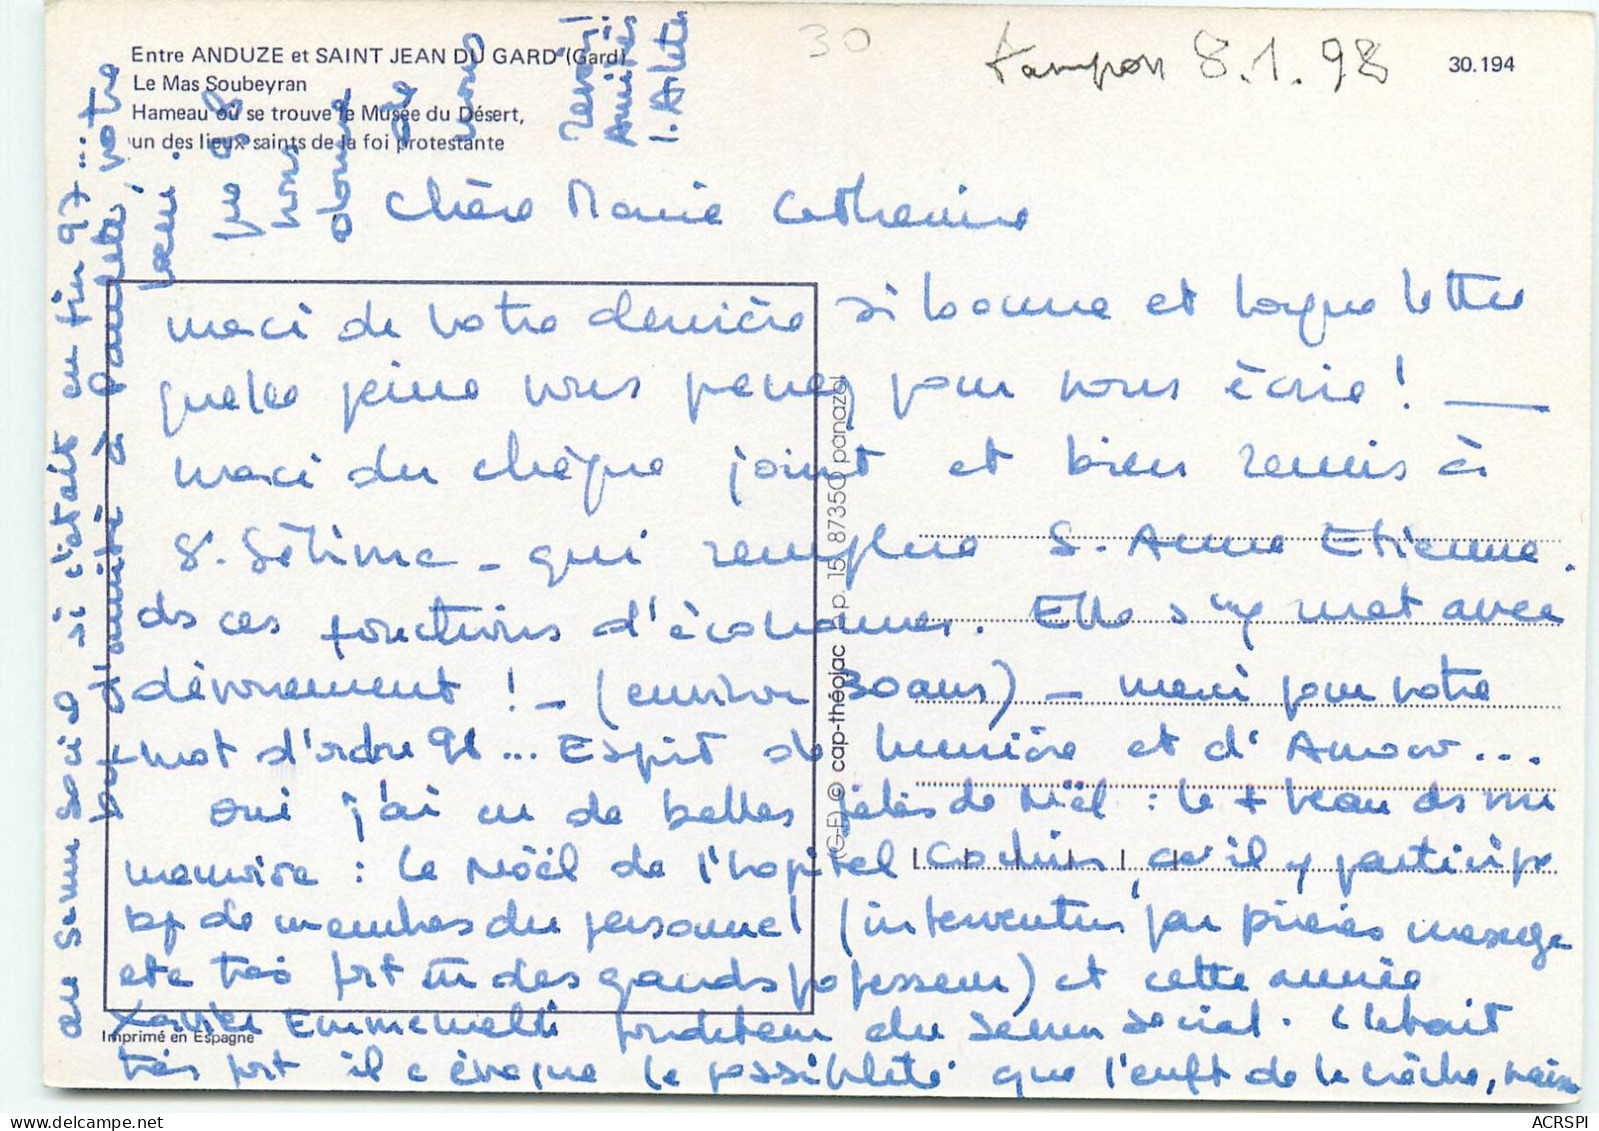 Entre ANDUZE et SAINT JEAN DU GARD (Gard)
Le Mas Soubeyran
Hameau où se trouve le Musée du Désert,
un des lieux saints de la foi protestante
30
Tampon 8.1.98
30.194
Chère Marie Catherine
merci de votre dernière si bonne et longue lettre
quelle peine vous prenez pour nous écrire !
merci du chèque joint et bien remis à
S. Anne Etienne.
ds ces fonctions d'économes. Elle s'y met avec
dévouement ! - (environ 30 ans) - merci pour votre
mot d'ordre 98 ... Esprit de lumière et d'Amour...
oui j'ai eu de belles fêtes de Noël : le + beau ds ma
mémoire : le Noël de l'hopital Cochin car il y participe
bp de membres du personnel (interventions par prières message
etc très fort des grands professeurs) et cette année
Xavier Emmanuelli fondateur du Samu social. C'était
très fort il a évoqué la possibilité que l'enft de la crèche, mais
au Samu social si c'était en fin 97...
d'amitié à Paulette, votre
que 98
nous
donne
de
nous
revoir
Amitiés
I. Arlette
(G-E) © cap-théojac b.p. 15 87350 panazol
Imprimé en Espagne
ACRSPI